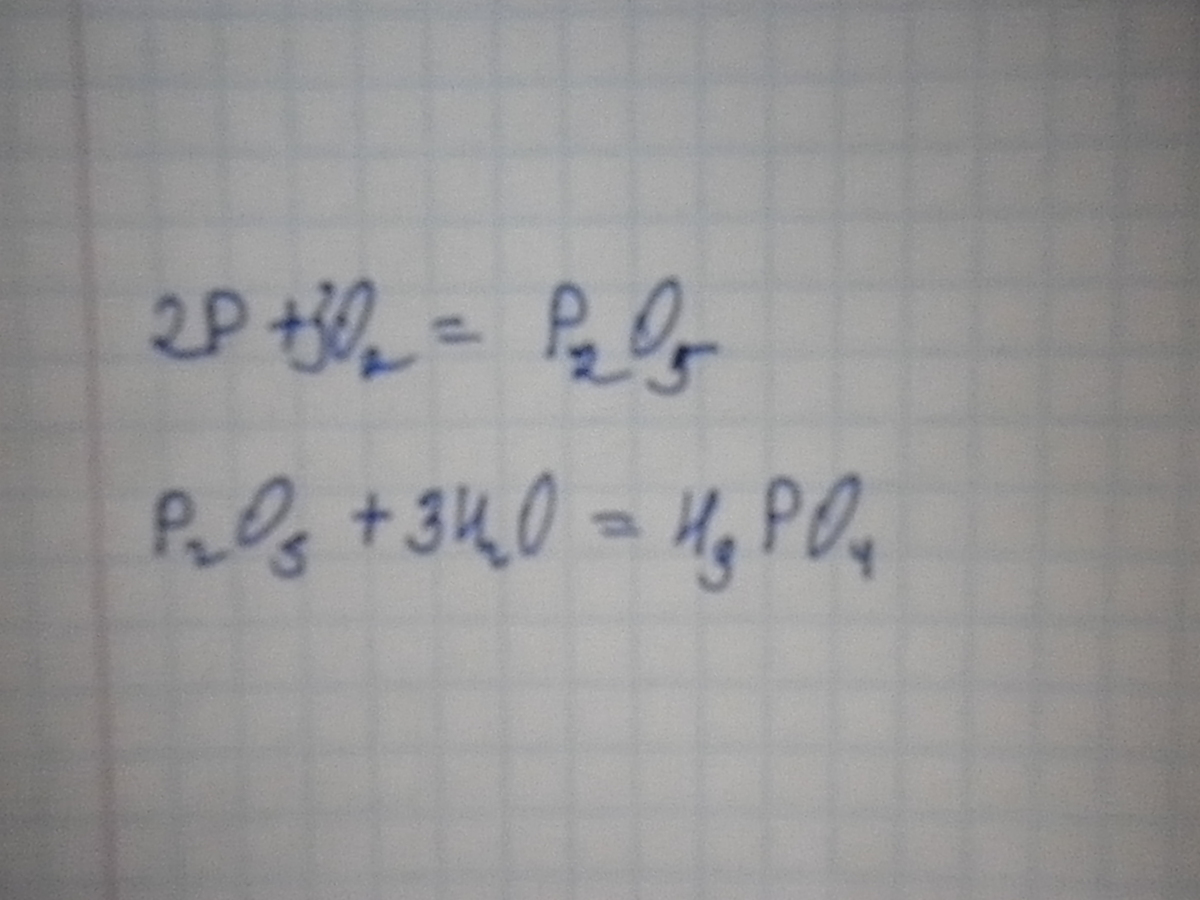 2P + 3O₂ = P₂O₅
P₂O₅ + 3H₂O = H₃PO₄